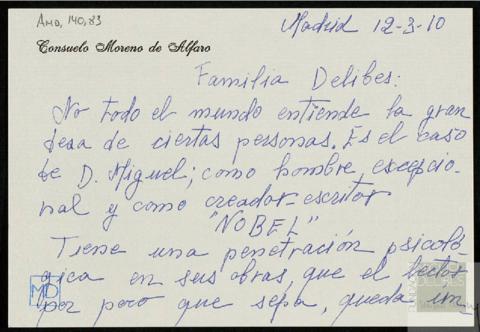 AMD, 140, 83
Madrid 12-3-10
Consuelo Moreno de Alfaro
Familia Delibes:
No todo el mundo entiende la gran
deza de ciertas personas. Es el caso
de D. Miguel; como hombre escepcio_
nal y como creador-escritor
"NOBEL"
Tiene una penetración psicoló_
gica en sus obras, que el lector
por poco que sepa, queda un
MD